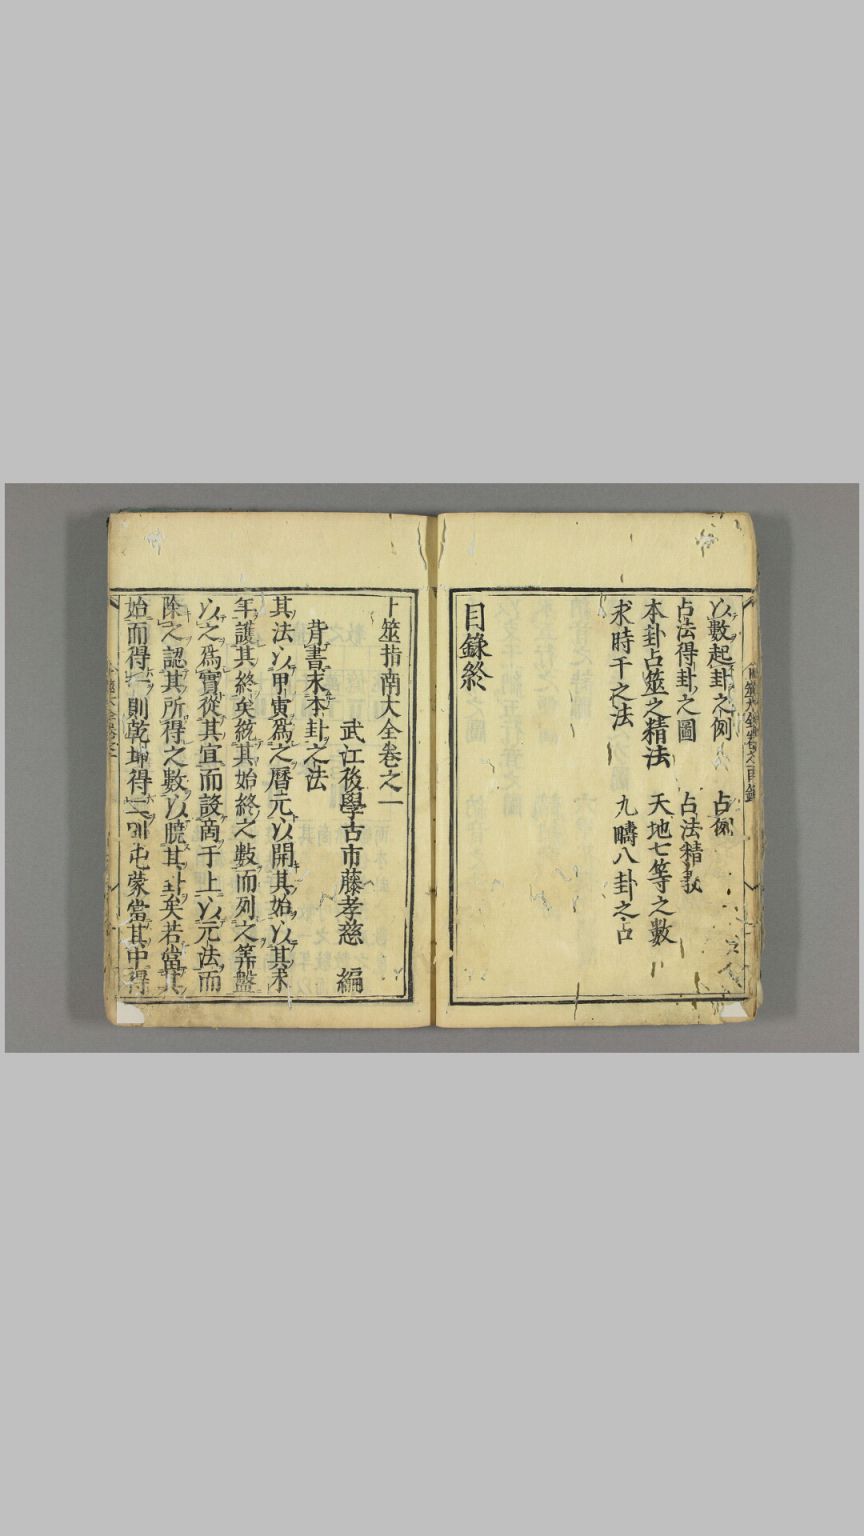 以數起卦之例 占例
占法得卦之圖 占法精義
本卦占筮之精法 天地七等之數
求時干之法 九疇八卦之占
目錄終
卜筮指南大全卷之一
武江後學古市藤孝慈 編
背書末本卦之法
其法以甲寅爲之曆元以開其始以其求
年護其終矣統其始終之數而列之筭盤
以之爲實從其宜而設商于上以元法而
除之認其所得之數以驍其卦矣若當其
始而得一則乾坤得二則屯蒙當其中得